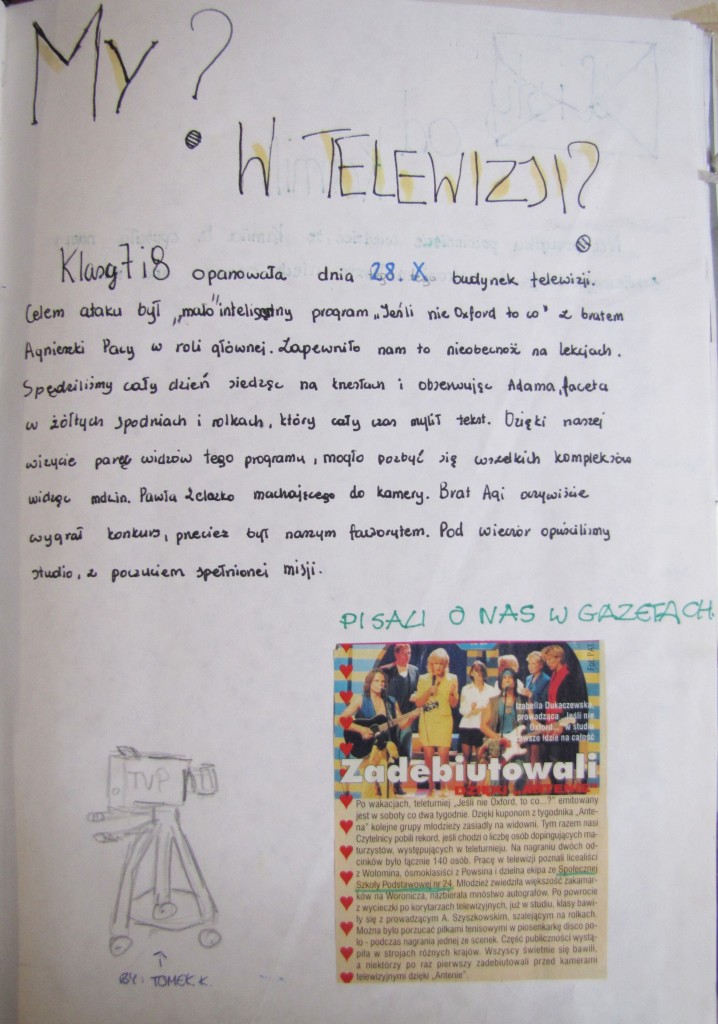 MY?
W TELEWIZJI?
Klasy 7 i 8 opanowała dnia 28. X budynek telewizji.
Celem ataku był „mało" inteligentny program „Jeśli nie Oxford to co" z bratem
Agnieszki Pacy w roli głównej. Zapewniło nam to nieobecność na lekcjach.
Spędziliśmy cały dzień siedząc na krzesłach i obserwując Adama, faceta
w żółtych spodniach i rolkach, który cały czas mylił tekst. Dzięki naszej
wizycie parę widzów tego programu, mogło pozbyć się wszelkich kompleksów
widząc mdzin. Pawła Żelazko machającego do kamery. Brat Agi oczywiście
wygrał konkurs, przecież był naszym faworytem. Pod wieczór opuściliśmy
studio, z poczuciem spełnionej misji.
PISALI O NAS W GAZETACH.
Fot. PAT
Izabella Dukaczewska,
prowadząca „Jeśli nie
Oxford..." w studiu
zawsze idzie na całość
Zadebiutowali
DZIĘKI „ANTENIE"
Po wakacjach, teleturniej „Jeśli nie Oxford, to co...?" emitowany
jest w soboty co dwa tygodnie. Dzięki kuponom z tygodnika „Ante-
na" kolejne grupy młodzieży zasiadły na widowni. Tym razem nasi
Czytelnicy pobili rekord, jeśli chodzi o liczbę osób dopingujących ma-
turzystów, występujących w teleturnieju. Na nagraniu dwóch od-
cinków było łącznie 140 osób. Pracę w telewizji poznali licealiści
z Wołomina, ósmoklasiści z Powsina i dzielna ekipa ze Społecznej
Szkoły Podstawowej nr 24. Młodzież zwiedziła większość zakamar-
ków na Woronicza, nazbierała mnóstwo autografów. Po powrocie
z wycieczki po korytarzach telewizyjnych, już w studiu, klasy bawi-
ły się z prowadzącym A. Szyszkowskim, szalejącym na rolkach.
Można było porzucać piłkami tenisowymi w piosenkarkę disco po-
lo - podczas nagrania jednej ze scenek. Część publiczności wystą-
piła w strojach różnych krajów. Wszyscy świetnie się bawili,
a niektórzy po raz pierwszy zadebiutowali przed kamerami
telewizyjnymi dzięki „Antenie".
TVP
BY: TOMEK.K.